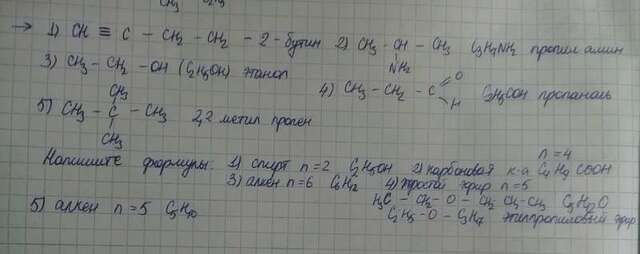 → 1) CH ≡ C – CH₂ – CH₂ – 2 – бутин 2) CH₃ – CH – CH₃ C₃H₇NH₂ пропил амин
NH₂
3) CH₃ – CH₂ – OH (C₂H₅OH) этанол
4) CH₃ – CH₂ – C O H C₂H₅COH пропаналь
CH₃
5) CH₃ – C – CH₃ 2,2 метил пропен
CH₃
Напишите формулы: 1) спирт n=2 C₂H₅OH 2) карбоновая к-а n=4 C₄H₉COOH
3) алкен n=6 C₆H₁₂ 4) простой эфир n=5
H₃C – CH₂ – O – CH₂ CH₂–CH₃ C₅H₁₂O
5) алкен n=5 C₅H₁₀ C₂H₅ – O – C₃H₇ этилпропиловый эфир